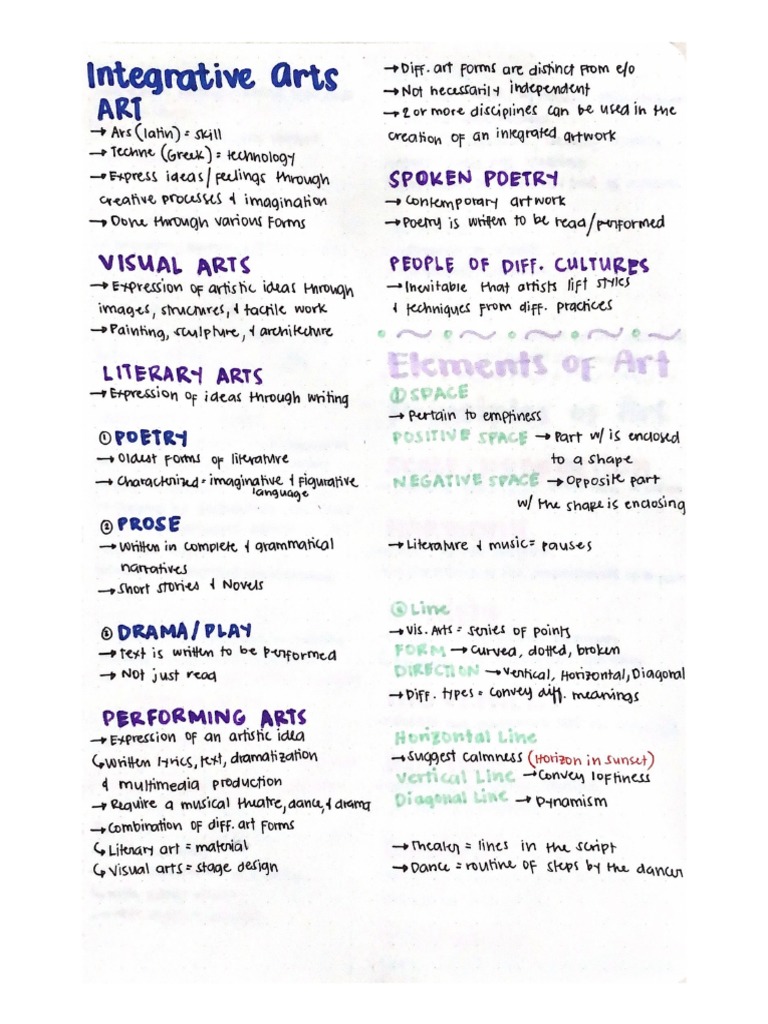 Integrative Arts
ART
→ Ars (latin) = skill
→ Techne (Greek) = technology
→ Express ideas/feelings through
creative processes & imagination
→ Done through various forms
VISUAL ARTS
→ Expression of artistic ideas through
images, structures, & tactile work
→ Painting, sculpture, & architecture
LITERARY ARTS
→ Expression of ideas through writing
① POETRY
→ Oldest forms of literature
→ Characterized = imaginative & figurative
language
② PROSE
→ Written in complete & grammatical
narratives
→ Short stories & Novels
③ DRAMA/PLAY
→ Text is written to be performed
→ Not just read
PERFORMING ARTS
→ Expression of an artistic idea
↳ Written lyrics, text, dramatization
& multimedia production
→ Require a musical theatre, dance, & drama
→ Combination of diff. art forms
↳ Literary art = material
↳ Visual arts = stage design
→ Diff. art forms are distinct from e/o
→ Not necessarily independent
→ 2 or more disciplines can be used in the
creation of an integrated artwork
SPOKEN POETRY
→ Contemporary artwork
→ Poetry is written to be read/performed
PEOPLE OF DIFF. CULTURES
→ Inevitable that artists lift styles
& techniques from diff. practices
Elements of Art
① SPACE
→ Pertain to emptiness
POSITIVE SPACE → Part w/ is enclosed
to a shape
NEGATIVE SPACE → Opposite part
w/ the shape is enclosing
→ Literature & music = pauses
② Line
→ Vis. Arts = series of points
FORM → Curved, dotted, broken
DIRECTION → Vertical, Horizontal, Diagonal
→ Diff. types = convey diff. meanings
Horizontal Line
→ Suggest calmness (Horizon in sunset)
Vertical Line → Convey loftiness
Diagonal Line → Dynamism
→ Theater = lines in the script
→ Dance = routine of steps by the dancer